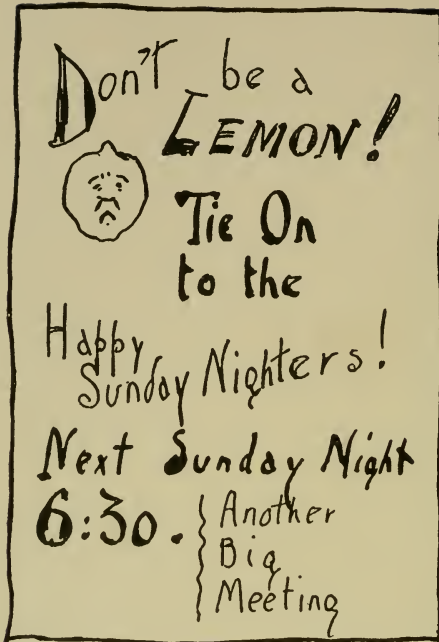 Don't be a
LEMON!
Tie On
to the
Happy
Sunday Nighters!
Next Sunday Night
6:30.
Another
Big
Meeting